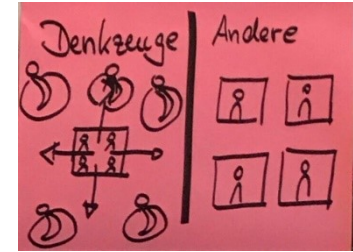 Denkzeuge
Andere